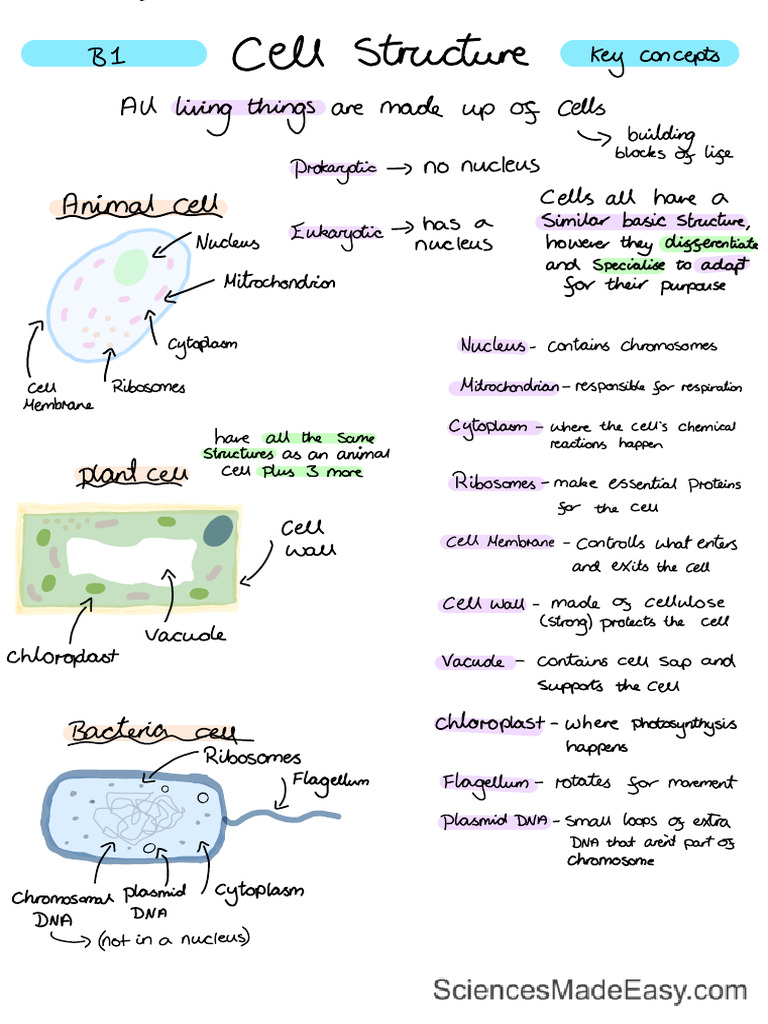 B1
Cell Structure
Key concepts
All living things are made up of cells
building
blocks of life
Prokaryotic → no nucleus
Eukaryotic → has a
nucleus
Cells all have a
Similar basic structure,
however they differentiate
and specialise to adapt
for their purpouse
Animal cell
Nucleus
Mitrochondrion
Cytoplasm
Cell
Membrane
Ribosomes
Nucleus - contains chromosomes
Mitrochondrian - responsible for respiration
Cytoplasm - where the cell's chemical
reactions happen
Ribosomes - make essential Proteins
for the cell
Cell Membrane - Controlls what enters
and exits the cell
Cell wall - made of cellulose
(strong) protects the cell
Vacuole - contains cell sap and
supports the cell
Chloroplast - where photosynthysis
happens
Flagellum - rotates for movement
plasmid DNA - small loops of extra
DNA that aren't part of
chromosome
have all the same
structures as an animal
cell plus 3 more
plant cell
Cell
wall
Vacuole
Chloroplast
Bacteria cell
Ribosomes
Flagellum
Chromosomal
DNA
plasmid
DNA
Cytoplasm
(not in a nucleus)
SciencesMadeEasy.com